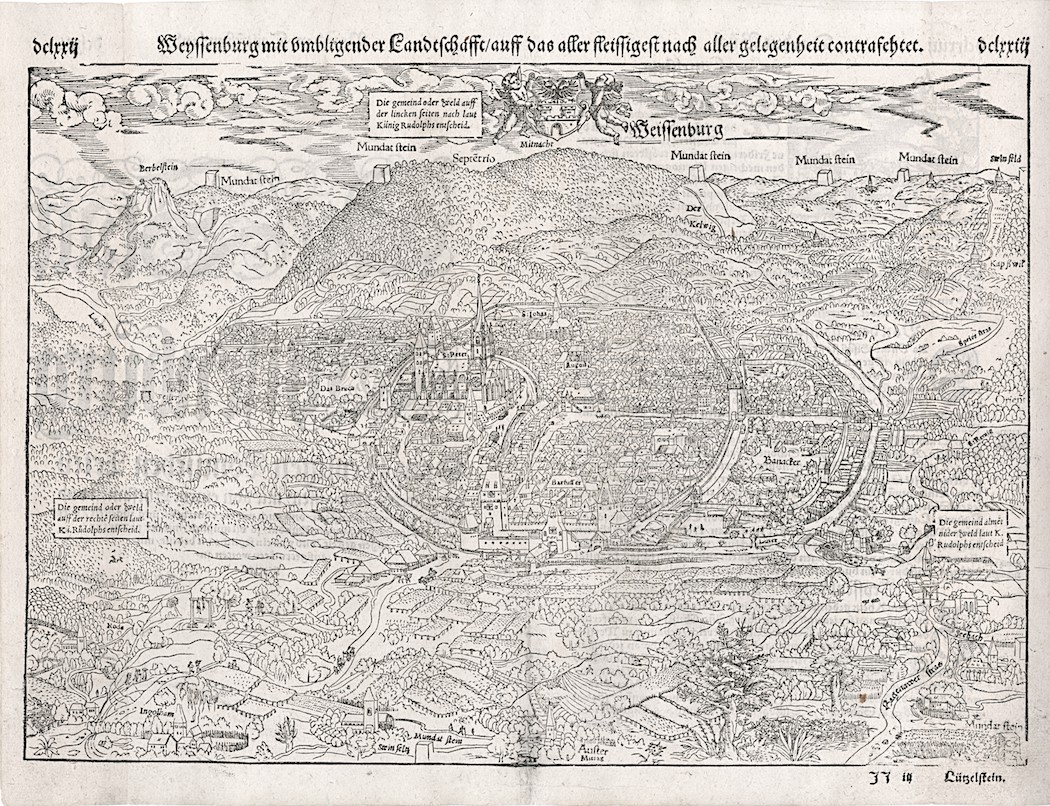 dclxxij
Weyssenburg mit vmbligender Landtschafft/auff das aller fleissigest nach aller gelegenheit contrafehtet.
dclxxiij
Die gemeind oder weld auff
der lincken seiten nach laut
Künig Rudolphs entscheid.
Weissenburg
Mitnacht
Mundat stein
Septētrio
Mundat stein
Mundat stein
Mundat stein
Berbelstein
Mundat stein
Der
S. Johās
S. Peter
August.
Das Bruch
Speier stras
Banacker
Barfusser
Die gemeind oder weld
auff der rechtē seiten laut
Kü. Rūdolphs entscheid.
Die gemeind almēt
oder weld laut K.
Rudolphs entscheid
Lauter
Mundat stein
Mundat stein
Auster
Mittag
JJ iij
Lützelstein.